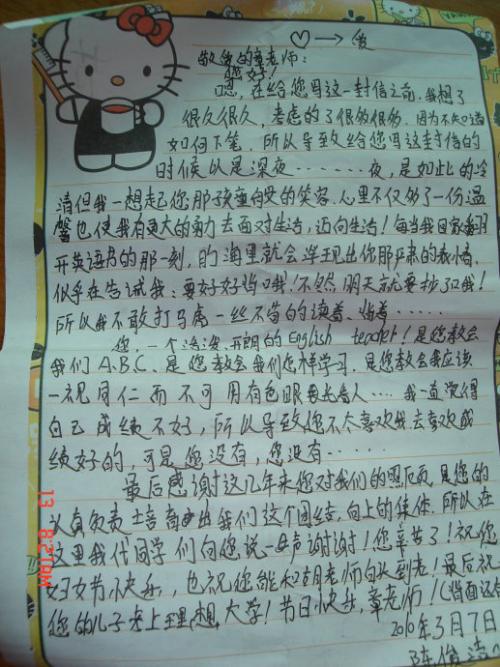 ♡→爱
敬爱的章老师:
您好!
嗯,在给您写这一封信之前,我想了
很久很久,考虑的了很多很多.因为不知道
如何下笔.所以导致给您写这封信的
时候以是深夜……夜,是如此的冷
清但我一想起您那孩童般的笑容.心里不仅多了一份温
馨也使我有更大的动力去面对生活,迈向生活!每当我回家翻
开英语书的那一刻,脑海里就会浮现出你那严肃的表情.
似乎在告诉我:要好好学习哦!不然,明天就要抄了哦!
所以我不敢打马虎一丝不苟的读着、背着……
您,一个活泼、开朗的English teacher!是您教会
我们A.B.C.是您教会我们怎样学习.是您教会我应该
一视同仁而不可用有色眼看人....我一直觉得
自己成绩不好,所以导致您不太喜欢我.去喜欢成
绩好的,可是,您没有,您没有……
最后感谢这几年来您对我们的照顾,是您的
认真负责 我们这个团结,向上的集体.所以在
这里我代同学们向您说一声谢谢!您辛苦了!祝您
妇女节快乐,也祝您能和 老师白头到老!最后祝
您的儿子考上理想大学!节日快乐,章老师!(背面还有
2010年3月7日
陈